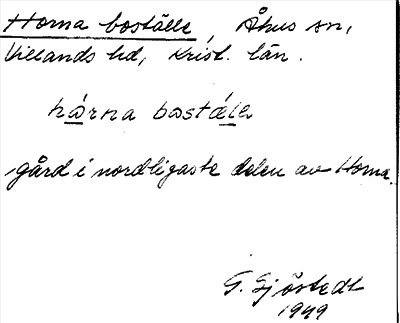 Horna boställe, Åhus sn,
Villands hd, Krist. län.
hårna bostäle
gård i nordligaste delen av Horna.
G. Sjöstedt
1949